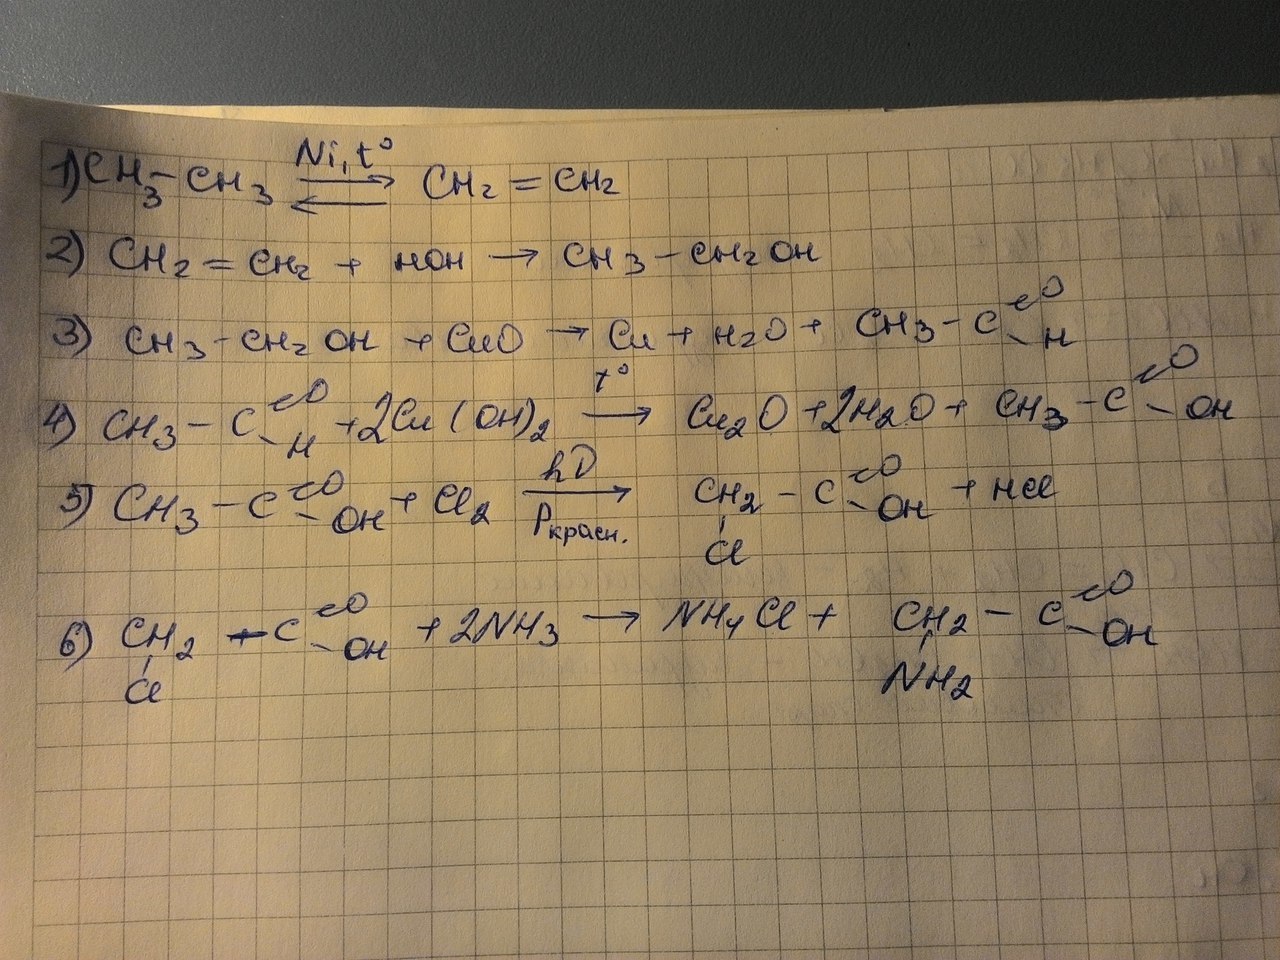 1) CH3-CH3 ⇄ Ni, t° CH2 = CH2
2) CH2 = CH2 + HOH → CH3 - CH2 OH
3) CH3 - CH2 OH + CuO → Cu + H2O + CH3 - C =O - H
4) CH3 - C =O - H + 2Cu(OH)2 t° → Cu2O + 2H2O + CH3 - C =O - OH
5) CH3 - C =O - OH + Cl2 hν → Pкрасн. CH2 - C =O - OH + HCl
Cl
6) CH2 - C =O - OH + 2NH3 → NH4Cl + CH2 - C =O - OH
Cl NH2